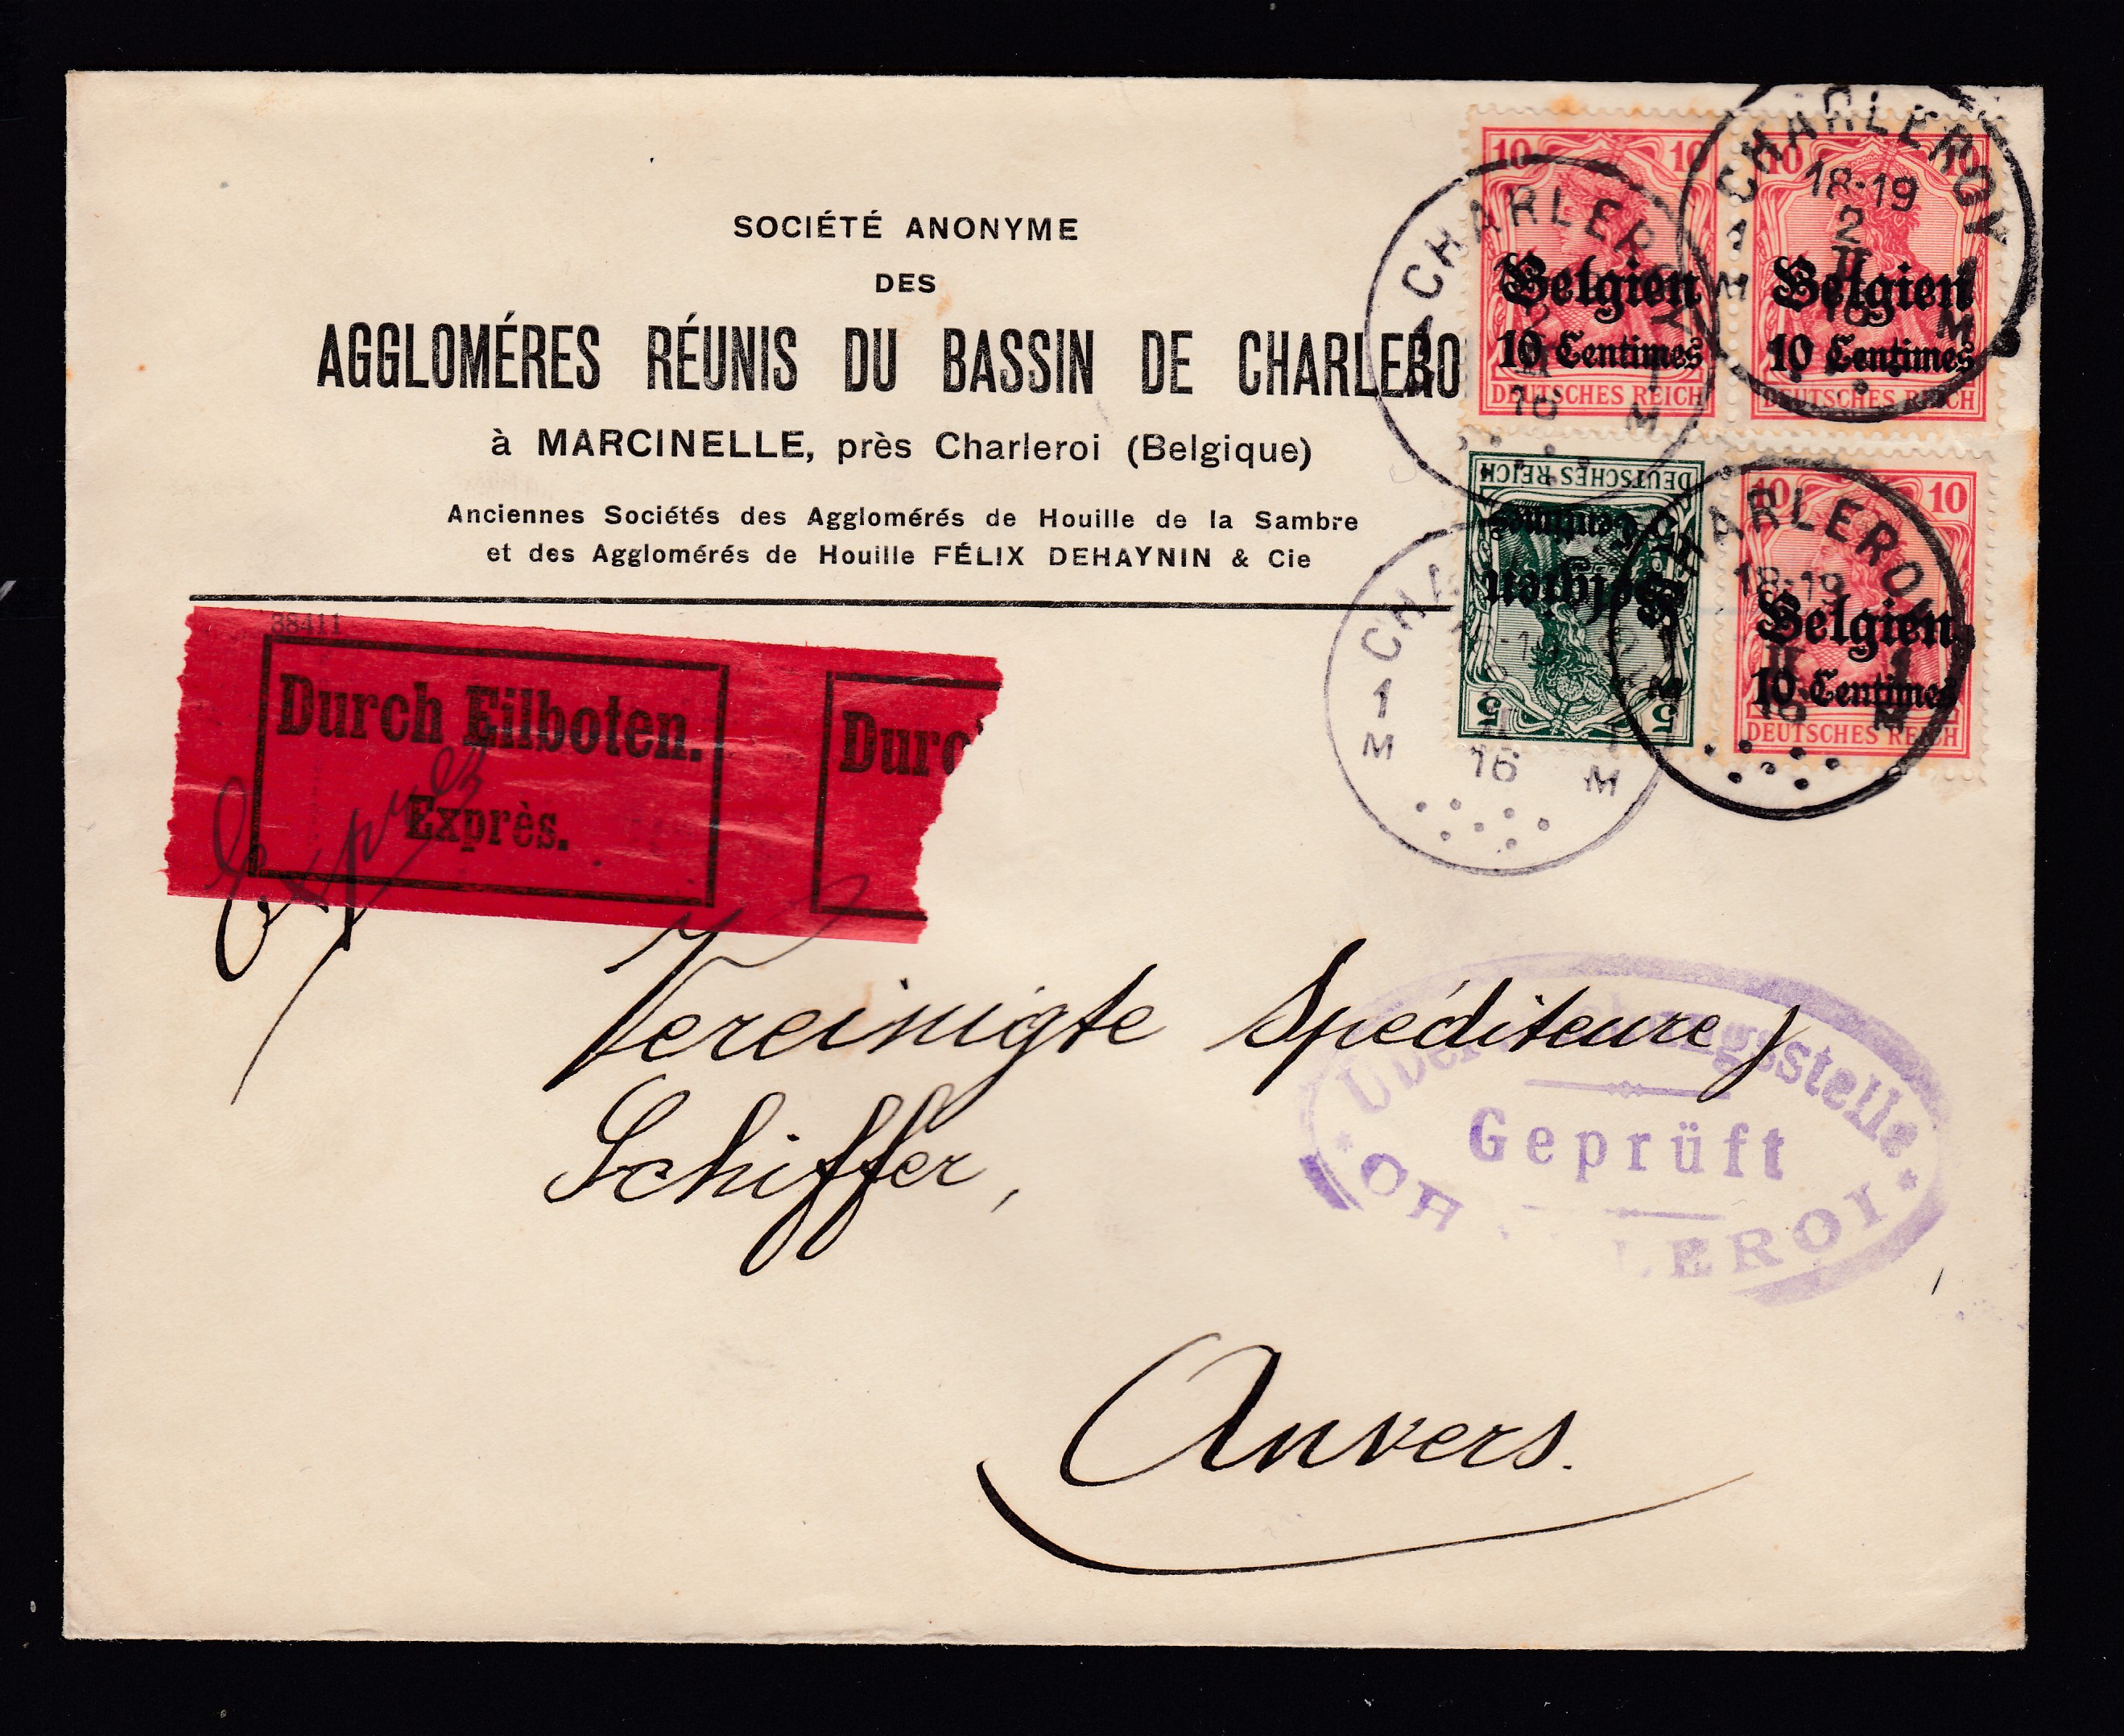 SOCIÉTÉ ANONYME
DES
AGGLOMÉRES RÉUNIS DU BASSIN DE CHARLERO
à MARCINELLE, près Charleroi (Belgique)
Anciennes Sociétés des Agglomérés de Houille de la Sambre
et des Agglomérés de Houille FÉLIX DEHAYNIN & Cie
10 10
Belgien
10 Centimes
DEUTSCHES REICH
10 10
Belgien
10 Centimes
DEUTSCHES REICH
DEUTSCHES REICH
5 Centimes
Belgien
5 5
10 10
Belgien
10 Centimes
DEUTSCHES REICH
CHARLEROY
1 1
M M
2
II
16
CHARLEROY
18-19
2
II
16
1 1
M M
CHA
1 1
M M
16
CHARLEROY
18-19
II
16
1
M M
38411
Durch Eilboten.
Exprès.
Durc
Exprès
Vereinigte Spéditeure
Schiffer,
Anvers.
Überwachungsstelle
Geprüft
CHARLEROI